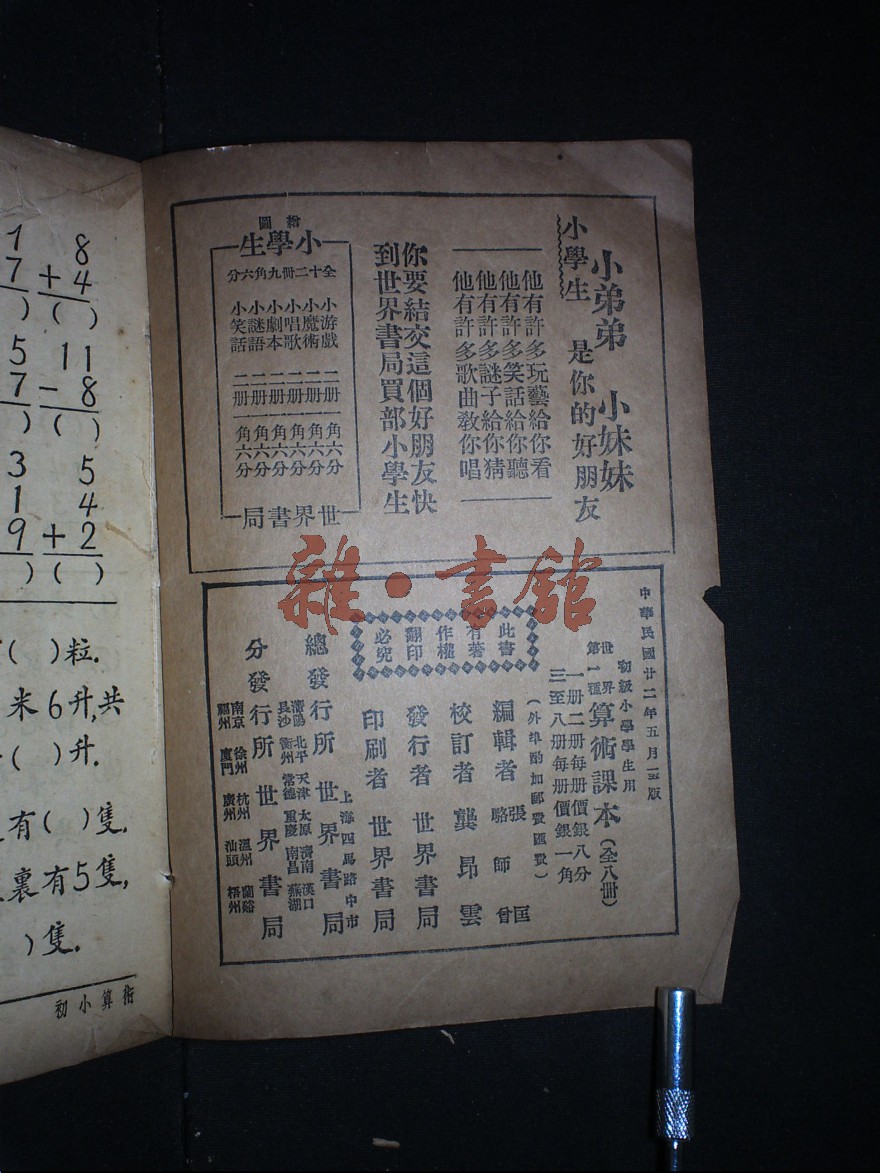 小弟弟 小妹妹
小學生 是你的好朋友
他有許多玩藝給你看
他有許多笑話給你聽
他有許多謎子給你猜
他有許多歌曲教你唱
你要結交這個好朋友快
到世界書局買部小學生
繪圖
小學生
全十二冊九角六分
小游戲 二册 一角六分
小魔術 二册 一角六分
小唱歌 二册 一角六分
小劇本 二册 一角六分
小謎語 二册 一角六分
小笑話 二册 一角六分
世界書局
中華民國廿二年五月 版
初級小學學生用
世界第一種 算術課本 (全八冊)
一册二册每册價銀八分
三至八册每册價銀一角
(外埠酌加郵費匯費)
此書有著作權翻印必究
編輯者 張匡 駱師曾
校訂者 龔昂雲
發行者 世界書局
印刷者 世界書局
上海四馬路中市
總發行所 世界書局
瀋陽 北平 天津 太原 濟南 漢口
長沙 衡州 常德 重慶 南昌 蕪湖
分發行所 世界書局
南京 徐州 杭州 溫州 蘭谿
福州 廈門 廣州 汕頭 梧州
雜·書館
1 8
7 +4
) ( )
5 11
7 -8
) ( )
3 5
1 4
9 +2
) ( )
( )粒.
米6升,共
( )升.
有( )隻.
裏有5隻,
)隻.
初小算術